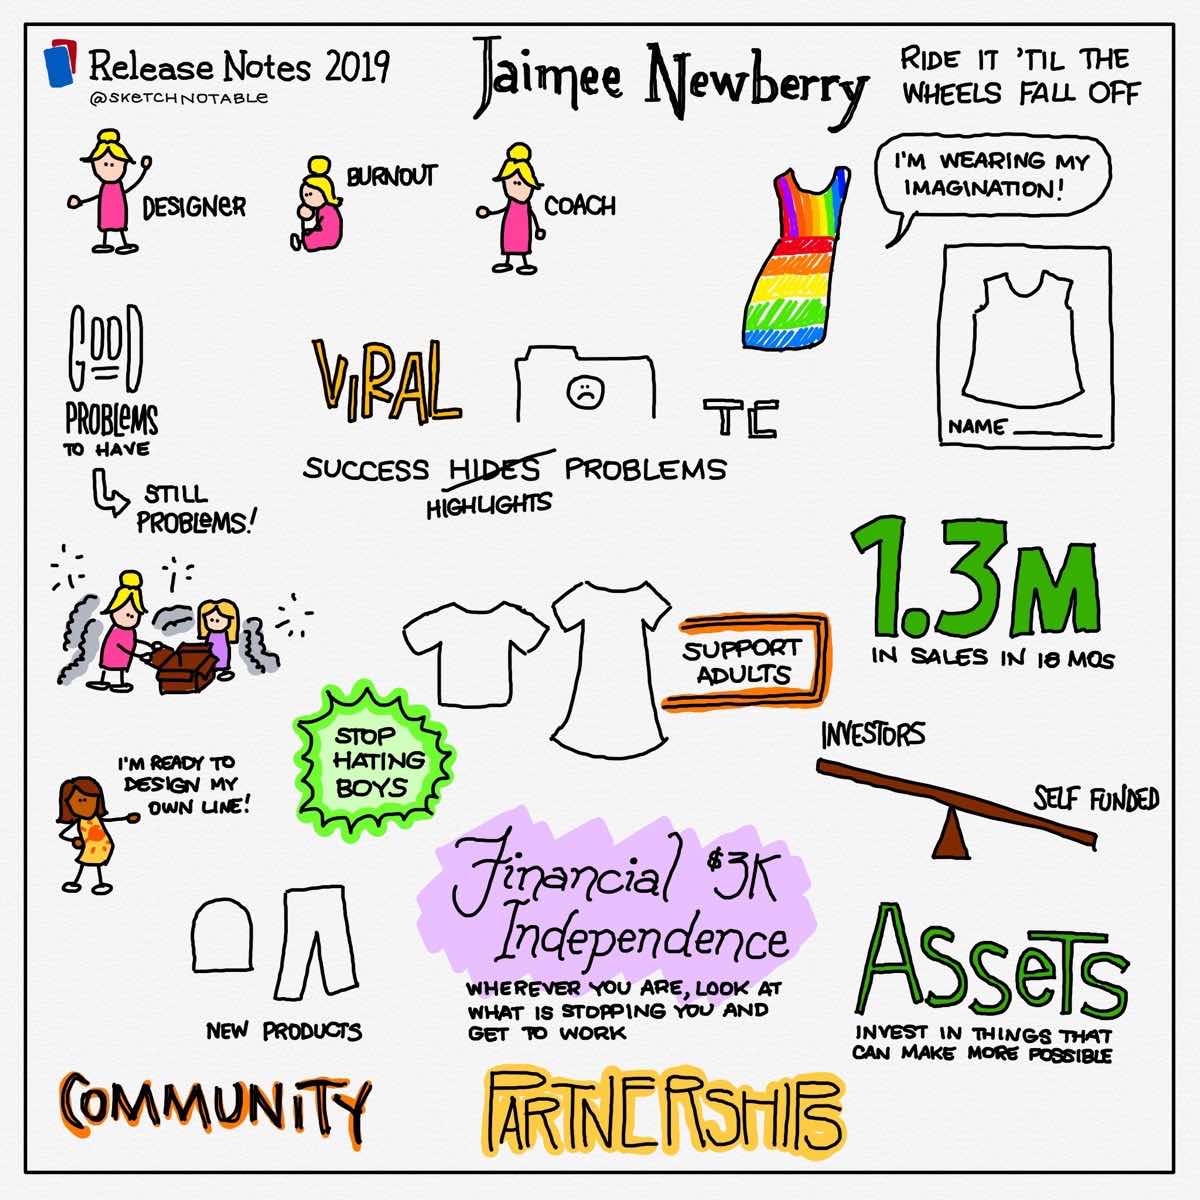 Release Notes 2019
@SKETCHNOTABLE
Jaimee Newberry
RIDE IT 'TIL THE
WHEELS FALL OFF
DESIGNER
BURNOUT
COACH
I'M WEARING MY
IMAGINATION!
NAME
GOOD
PROBLEMS
TO HAVE
STILL
PROBLEMS!
VIRAL
TC
SUCCESS HIDES PROBLEMS
HIGHLIGHTS
1.3M
IN SALES IN 18 MOS
SUPPORT
ADULTS
STOP
HATING
BOYS
INVESTORS
SELF FUNDED
I'M READY TO
DESIGN MY
OWN LINE!
Financial $3K
Independence
WHEREVER YOU ARE, LOOK AT
WHAT IS STOPPING YOU AND
GET TO WORK
NEW PRODUCTS
ASSETS
INVEST IN THINGS THAT
CAN MAKE MORE POSSIBLE
COMMUNITY
PARTNERSHIPS